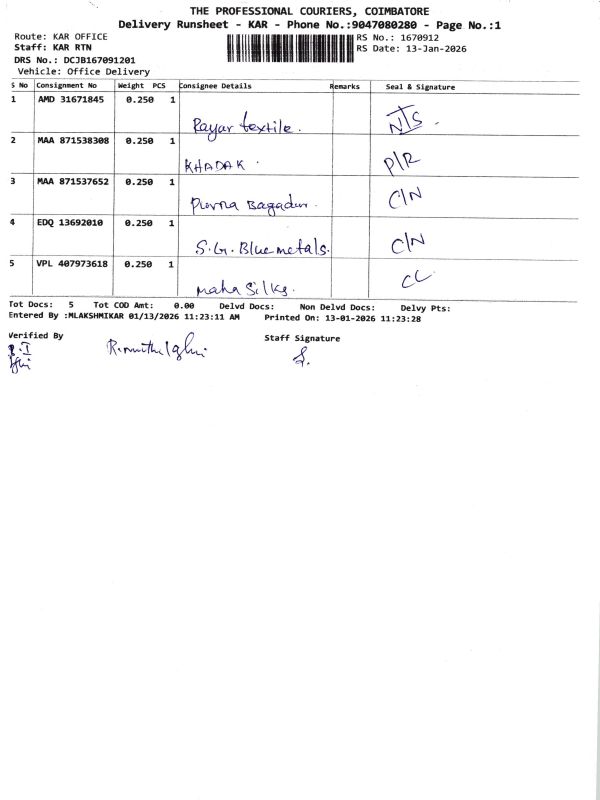 THE PROFESSIONAL COURIERS, COIMBATORE
Delivery Runsheet - KAR - Phone No.:9047080280 - Page No.:1
Route: KAR OFFICE RS No.: 1670912
Staff: KAR RTN RS Date: 13-Jan-2026
DRS No.: DCJB167091201
Vehicle: Office Delivery
S No Consignment No Weight PCS Consignee Details Remarks Seal & Signature
1 AMD 31671845 0.250 1 Rayar textile. N/S.
2 MAA 871538308 0.250 1 KHADAK. P/R
3 MAA 871537652 0.250 1 C/N
4 EDQ 13692010 0.250 1 S.G. Blue metals. C/N
5 VPL 407973618 0.250 1 Maha Silks. CL
Tot Docs: 5 Tot COD Amt: 0.00 Delvd Docs: Non Delvd Docs: Delvy Pts:
Entered By :MLAKSHMIKAR 01/13/2026 11:23:11 AM Printed On: 13-01-2026 11:23:28
Verified By Staff Signature